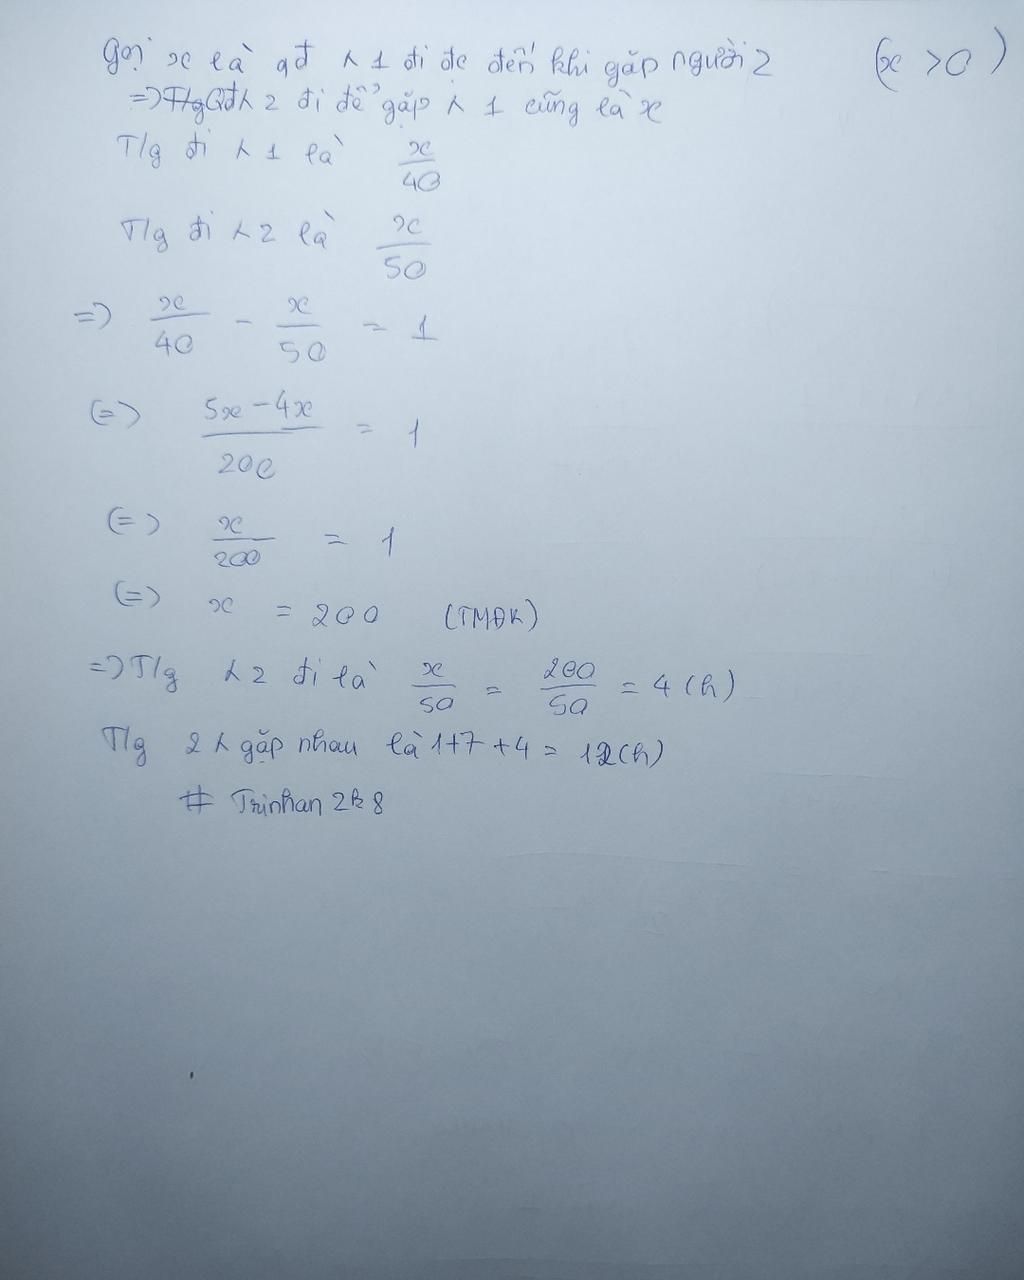 Gọi x là qđ λ 1 đi đc đến khi gặp người 2 (x > 0)
=> T/g Qđ λ 2 đi để gặp λ 1 cũng là x
T/g đi λ 1 là x/40
T/g đi λ 2 là x/50
=> x/40 - x/50 = 1
(=) (5x - 4x)/200 = 1
(=) x/200 = 1
(=) x = 200 (TMĐK)
=> T/g λ 2 đi là x/50 = 200/50 = 4 (h)
T/g 2 λ gặp nhau là 1+7+4 = 12 (h)
# Trinhan 2k8